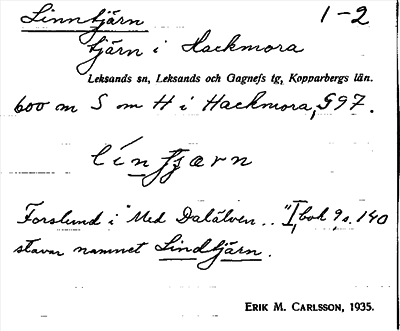 Linntjärn 1-2
tjärn i Hackmora
Leksands sn, Leksands och Gagnefs tg, Kopparbergs län.
600 m S om H i Hackmora, G97.
línʃærn
Forslund i "Med Dalälven.." I, bok 9, s. 140
stavar namnet Lindtjärn.
ERIK M. CARLSSON, 1935.